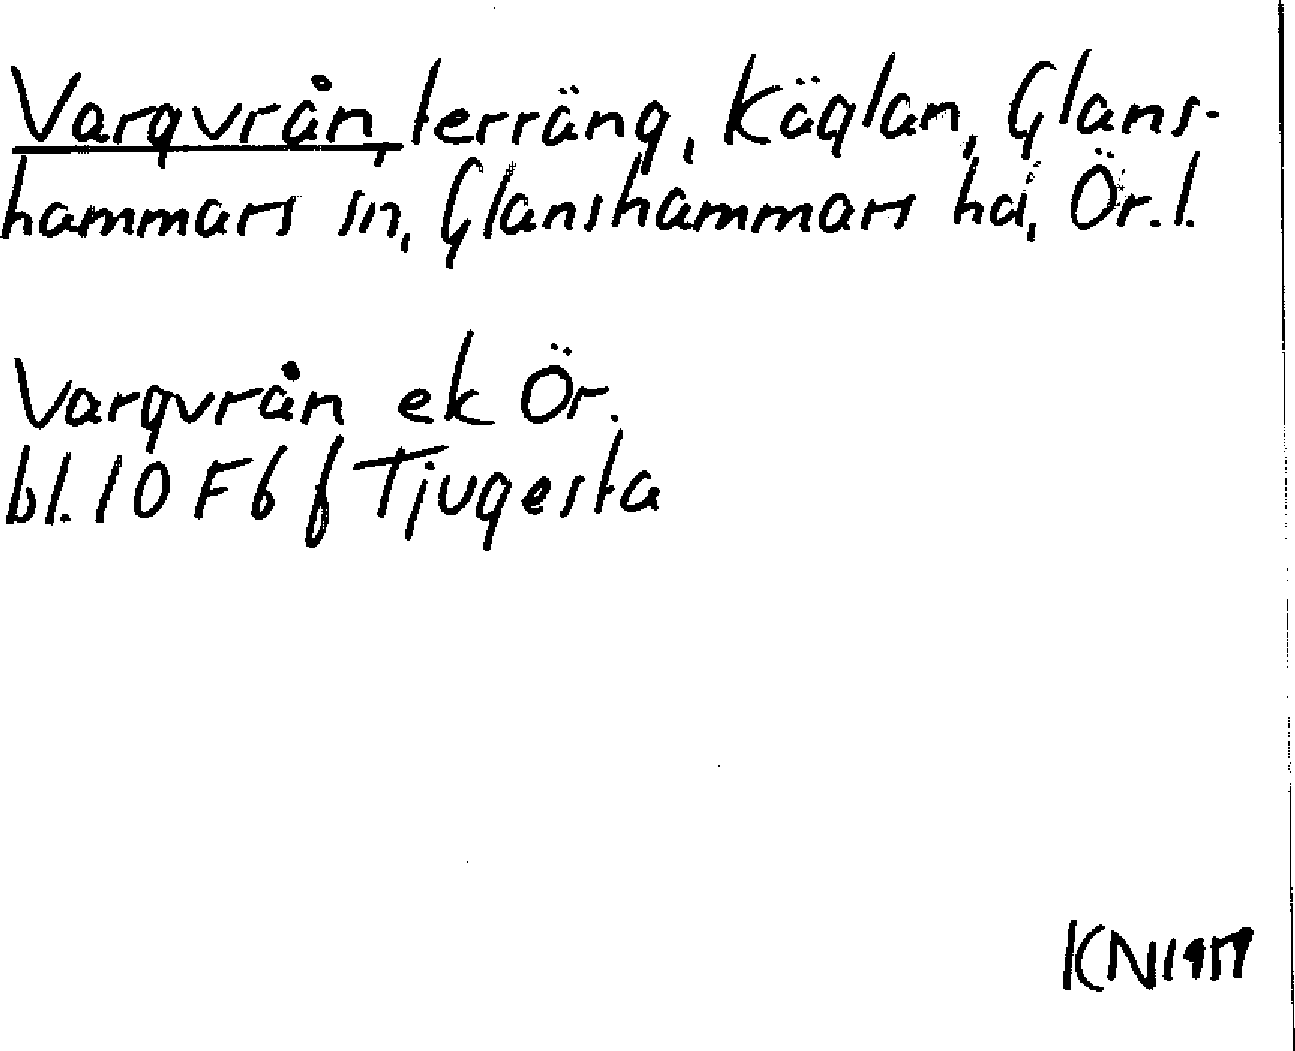 Vargvrån, terräng, Käglan, Glans-
hammars sn, Glanshammars hd, Ör. l.
Vargvrån ek Ör.
bl. 10 F6 f Tjugesta
KN